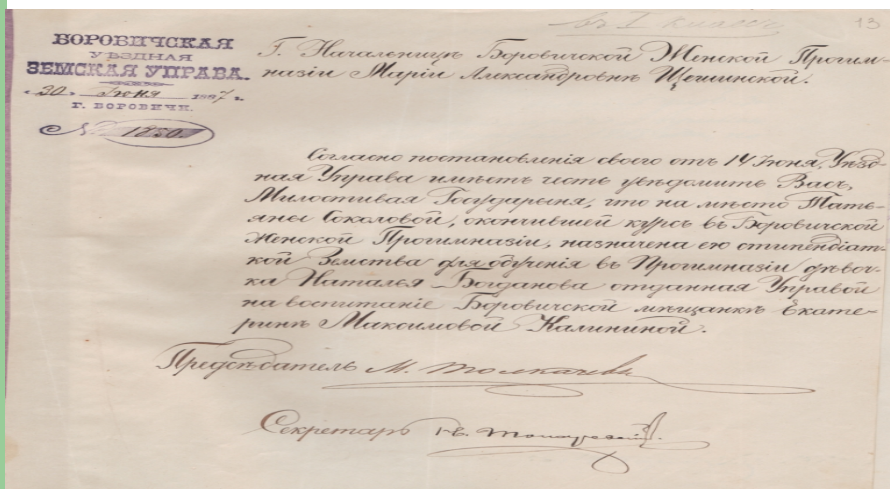 въ I классъ 13
БОРОВИЧСКАЯ
УѢЗДНАЯ
ЗЕМСКАЯ УПРАВА.
30 Іюня 1887 г.
Г. БОРОВИЧИ.
№ 1850
Г. Начальницѣ Боровичской Женской Прогим-
назіи Маріи Александровнѣ
Согласно постановленія своего отъ 14 Іюня, Уѣзд-
ная Управа имѣетъ честь увѣдомить Васъ,
Милостивая Государыня, что на мѣсто Тать-
яны Соколовой, окончившей курсъ въ Боровичской
Женской Прогимназіи, назначена ею стипендіат-
кой Земства для обученія въ Прогимназіи дѣвоч-
ка Наталья Богданова отданная Управой
на воспитаніе Боровичской мѣщанкѣ Екате-
ринѣ Максимовой Калининой.
Предсѣдатель М.
Секретарь